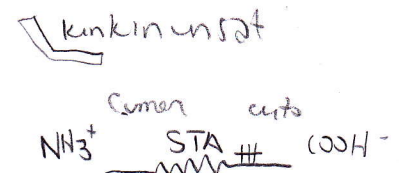 kink in unsat
lumen cyto
NH3+ STA COOH-